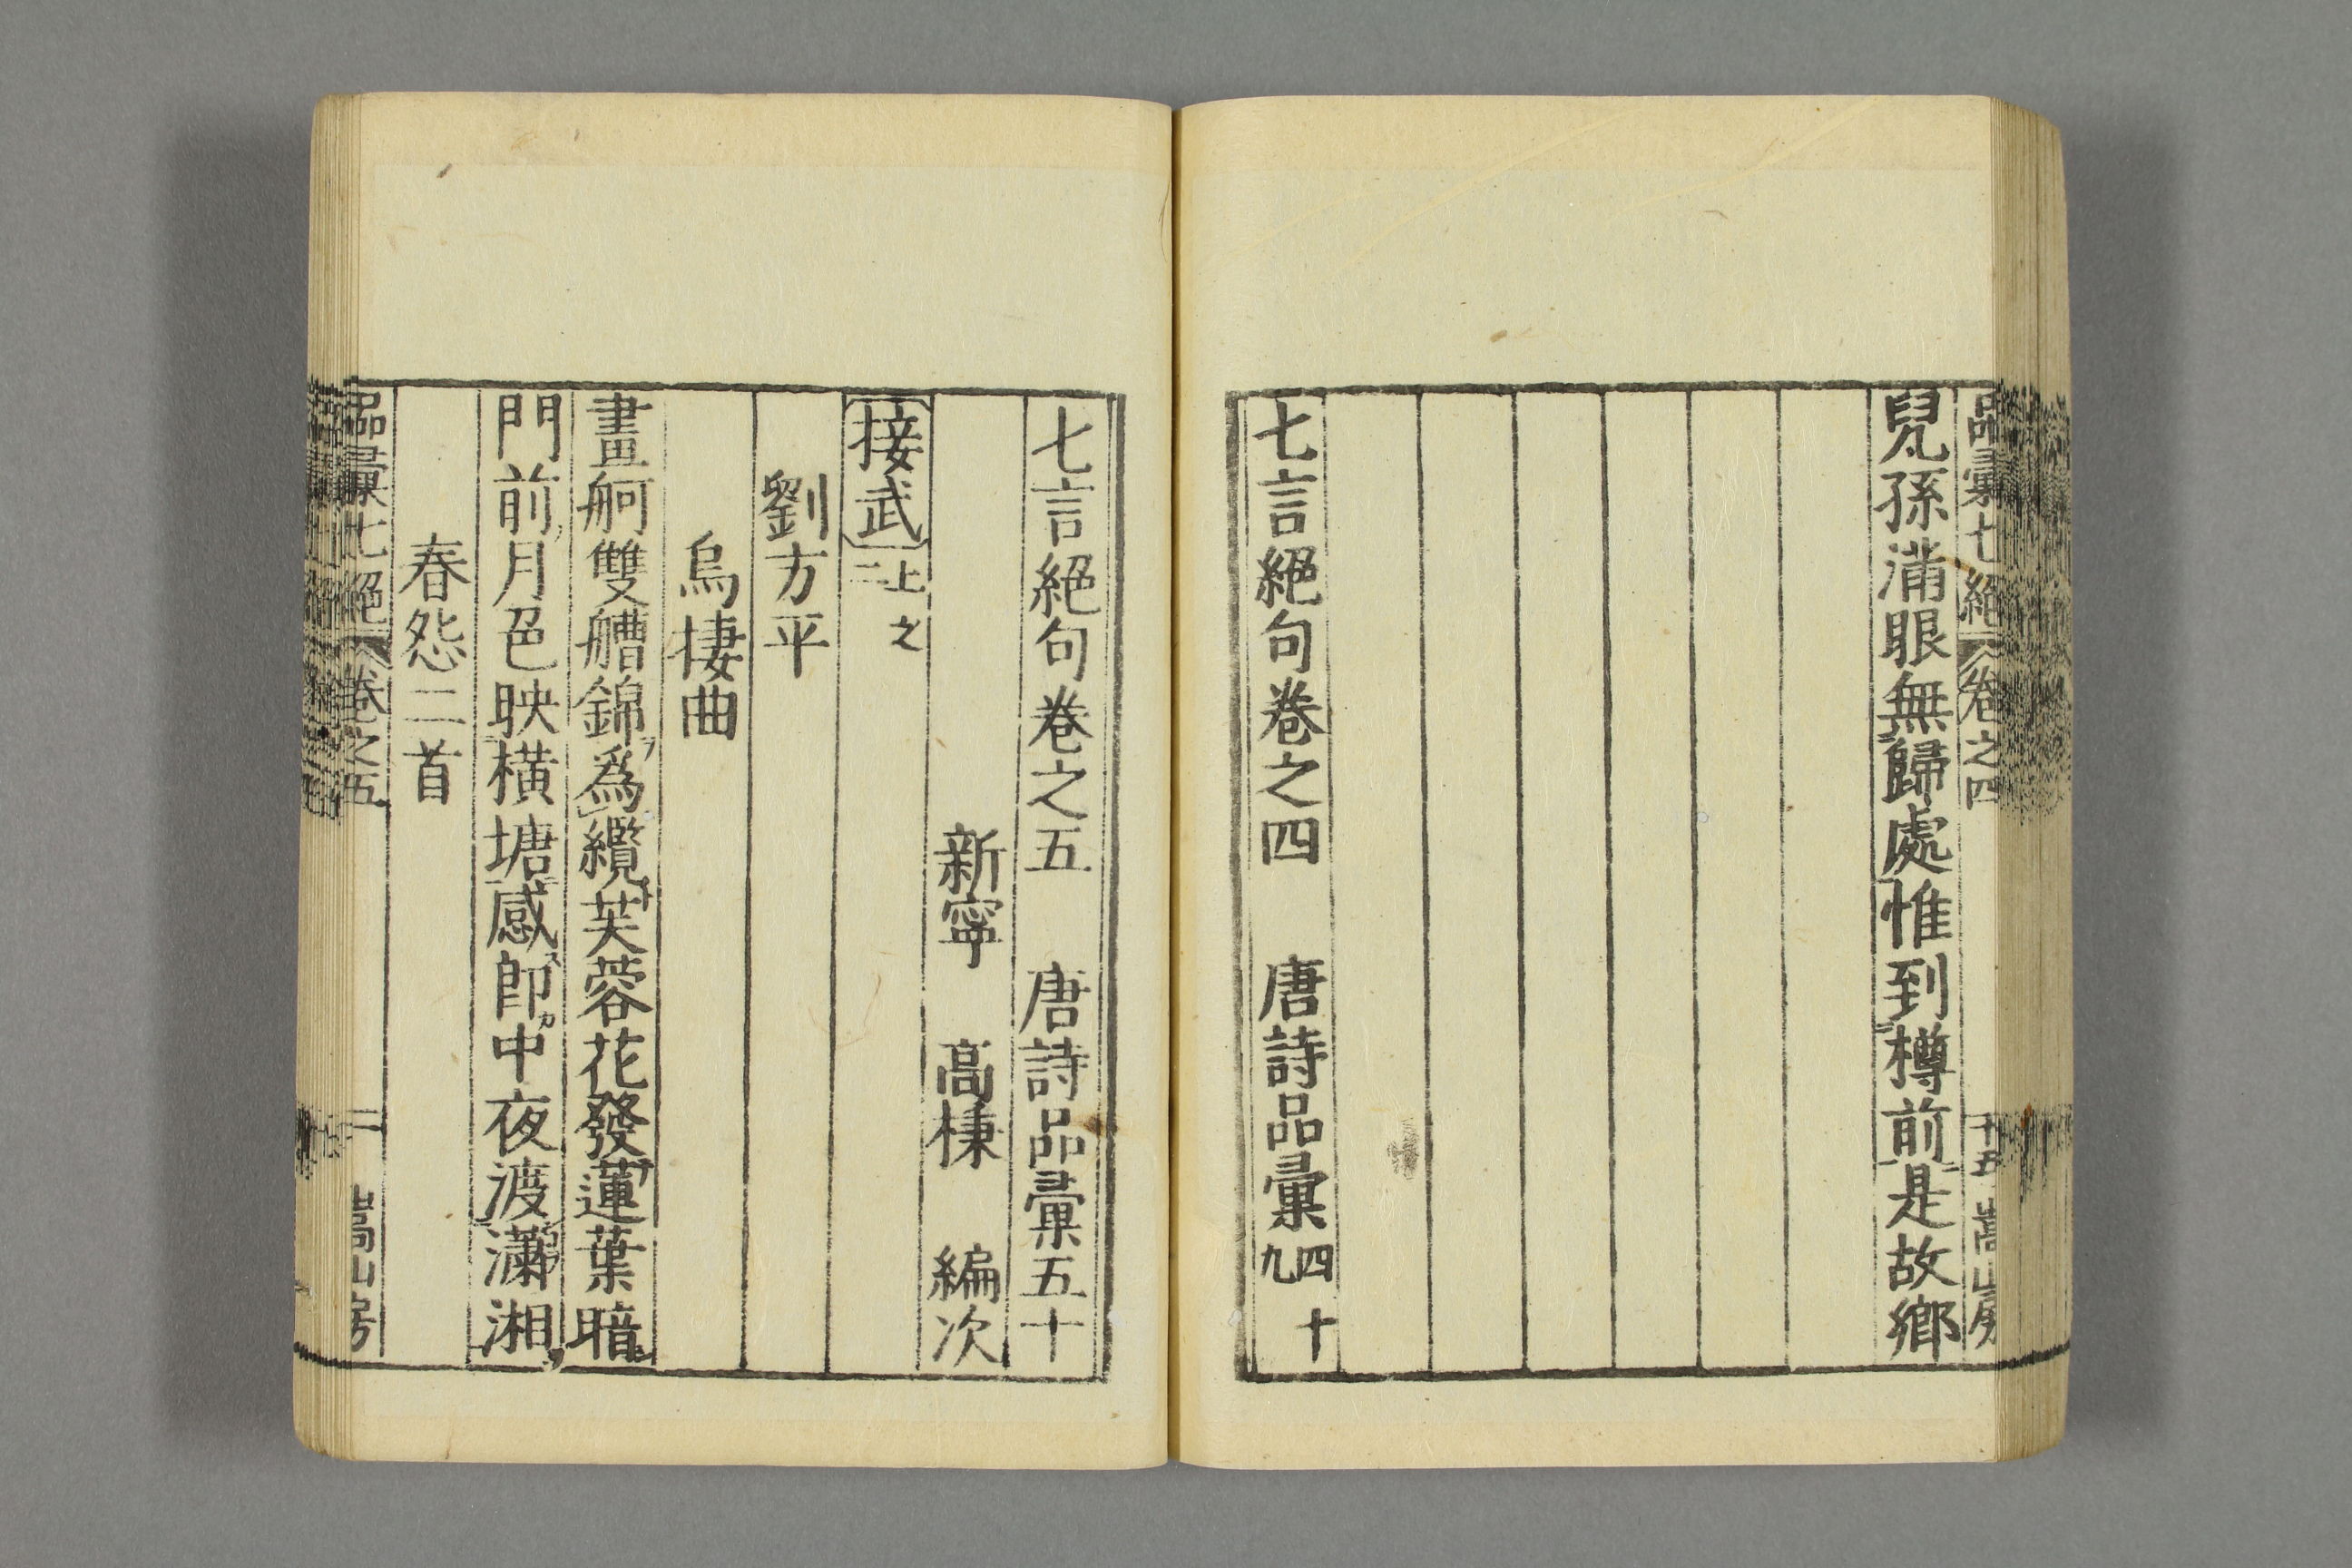 品彙七絶 卷之四 十五 嵩山房
兒孫滿眼無歸處惟到樽前是故鄉
七言絕句卷之四 唐詩品彙四十九
七言絕句卷之五 唐詩品彙五十
新寧 高棅 編次
接武上之二
劉方平
烏棲曲
畫舸雙艚錦爲纜芙蓉花發蓮葉暗
門前月色映橫塘感郎中夜渡瀟湘
春怨二首
品彙七絕 卷之五 一 嵩山房